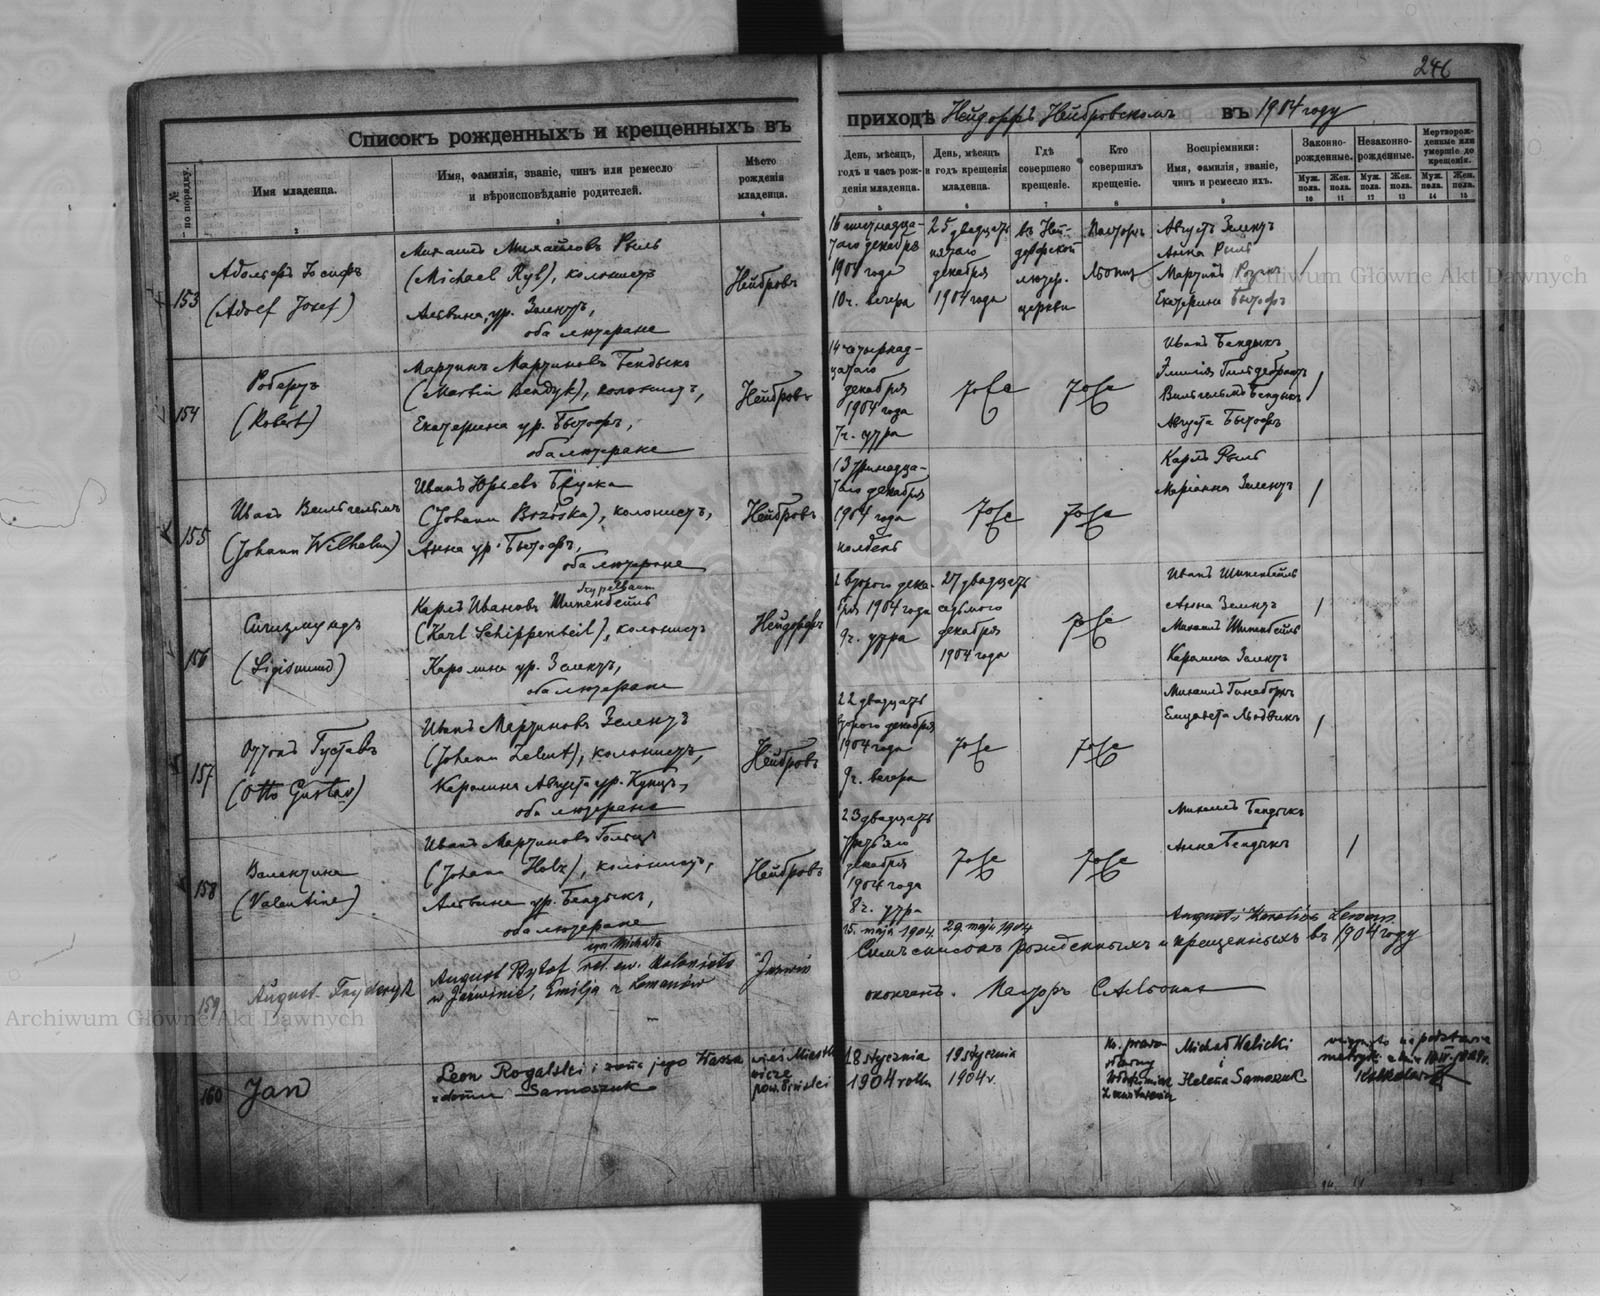 246
Списокъ рожденныхъ и крещенныхъ въ приходѣ Нейдорфъ Нейбровскомъ въ 1904 году
№ по порядку.
Имя младенца.
Имя, фамилія, званіе, чинъ или ремесло
и вѣроисповѣданіе родителей.
Мѣсто
рожденія
младенца.
День, мѣсяцъ,
годъ и часъ рож-
денія младенца.
День, мѣсяцъ
и годъ крещенія
младенца.
Гдѣ
совершено
крещеніе.
Кто
совершилъ
крещеніе.
Воспріемники:
Имя, фамилія, званіе,
чинъ и ремесло ихъ.
Законно-
рожденные.
Незаконно-
рожденные.
Мертворож-
денные или
умершіе до
крещенія.
Муж. пола.
Жен. пола.
Муж. пола.
Жен. пола.
Муж. пола.
Жен. пола.
2 3 4 5 6 7 8 9 10 11 12 13 14 15
153
Адольфъ Іосифъ
(Adolf Josef)
Михаилъ Михайловъ Рыль
(Michael Ryl), колонистъ
Альвина, ур. Зелентъ,
оба лютеране
Нейбровъ
16 шестнадца-
таго декабря
1904 года
10ч. вечера
25 двадцать
пятаго
декабря
1904 года
въ Ней-
дорфской
лютер.
церкви
Пасторъ
Августъ Зелентъ
Анна Рыль
Мартинъ
Екатерина Бытофъ
154
Робертъ
(Robert)
Мартинъ Мартиновъ Бендыкъ
(Martin Bendyk), колонистъ,
Екатерина ур. Бытофъ,
оба лютеране
Нейбровъ
14 четырнад-
цатаго
декабря
1904 года
7ч. утра
тоже
тоже
Иванъ Бендыкъ
Эмилія Гильдебрантъ
Вильгельмъ Бендыкъ
Августа Бытофъ
155
Иванъ Вильгельмъ
(Johann Wilhelm)
Иванъ Юрьевъ
(Johann Brzóska), колонистъ,
Анна ур. Бытофъ,
оба лютеране
Нейбровъ
13 тринадца-
таго декабря
1904 года
полдень
тоже
тоже
Карлъ Рыль
Маріанна Зелентъ
156
Сигизмундъ
(Sigismund)
Карлъ Ивановъ Шипенбейль
(Karl Schippenbeil), колонистъ
Каролина ур. Зелентъ,
оба лютеране
Нейдорфъ
2 второго дека-
бря 1904 года
9ч. утра
27 двадцать
седьмого
декабря
1904 года
тоже
Иванъ Шипенбейль
Анна Зелентъ
Михаилъ Шипенбейль
Каролина Зелентъ
157
Оттонъ Густавъ
(Otto Gustav)
Иванъ Мартиновъ Зелентъ
(Johann Zelent), колонистъ,
Каролина Августа ур. Кунцъ,
оба лютеране
Нейбровъ
22 двадцать
второго декабря
1904 года
9ч. вечера
тоже
тоже
Михаилъ
Елизавета Людвикъ
158
Валентина
(Valentine)
Иванъ Мартиновъ Гольцъ
(Johann Holz), колонистъ,
Альвина ур. Бендыкъ,
оба лютеране
Нейбровъ
23 двадцать
третьяго
декабря
1904 года
8ч. утра
тоже
тоже
Михаилъ Бендыкъ
Анна Бендыкъ
159
August Fryderyk
syn Michała
August Bytof
Emilja z Lemanów
15. maja 1904.
29. maja 1904
August i Karolina Leman
Симъ списокъ рожденныхъ и крещенныхъ въ 1904 году
оконченъ. Пасторъ
160
Jan
Leon Rogalski i żona jego
z domu Samoszuk
18 stycznia
1904 roku
19 stycznia
1904 r.
ks. prawo
sławny
Michał Walicki
i
Helena Samoszuk
na podstawie
Archiwum Główne Akt Dawnych
Archiwum Główne Akt Dawnych